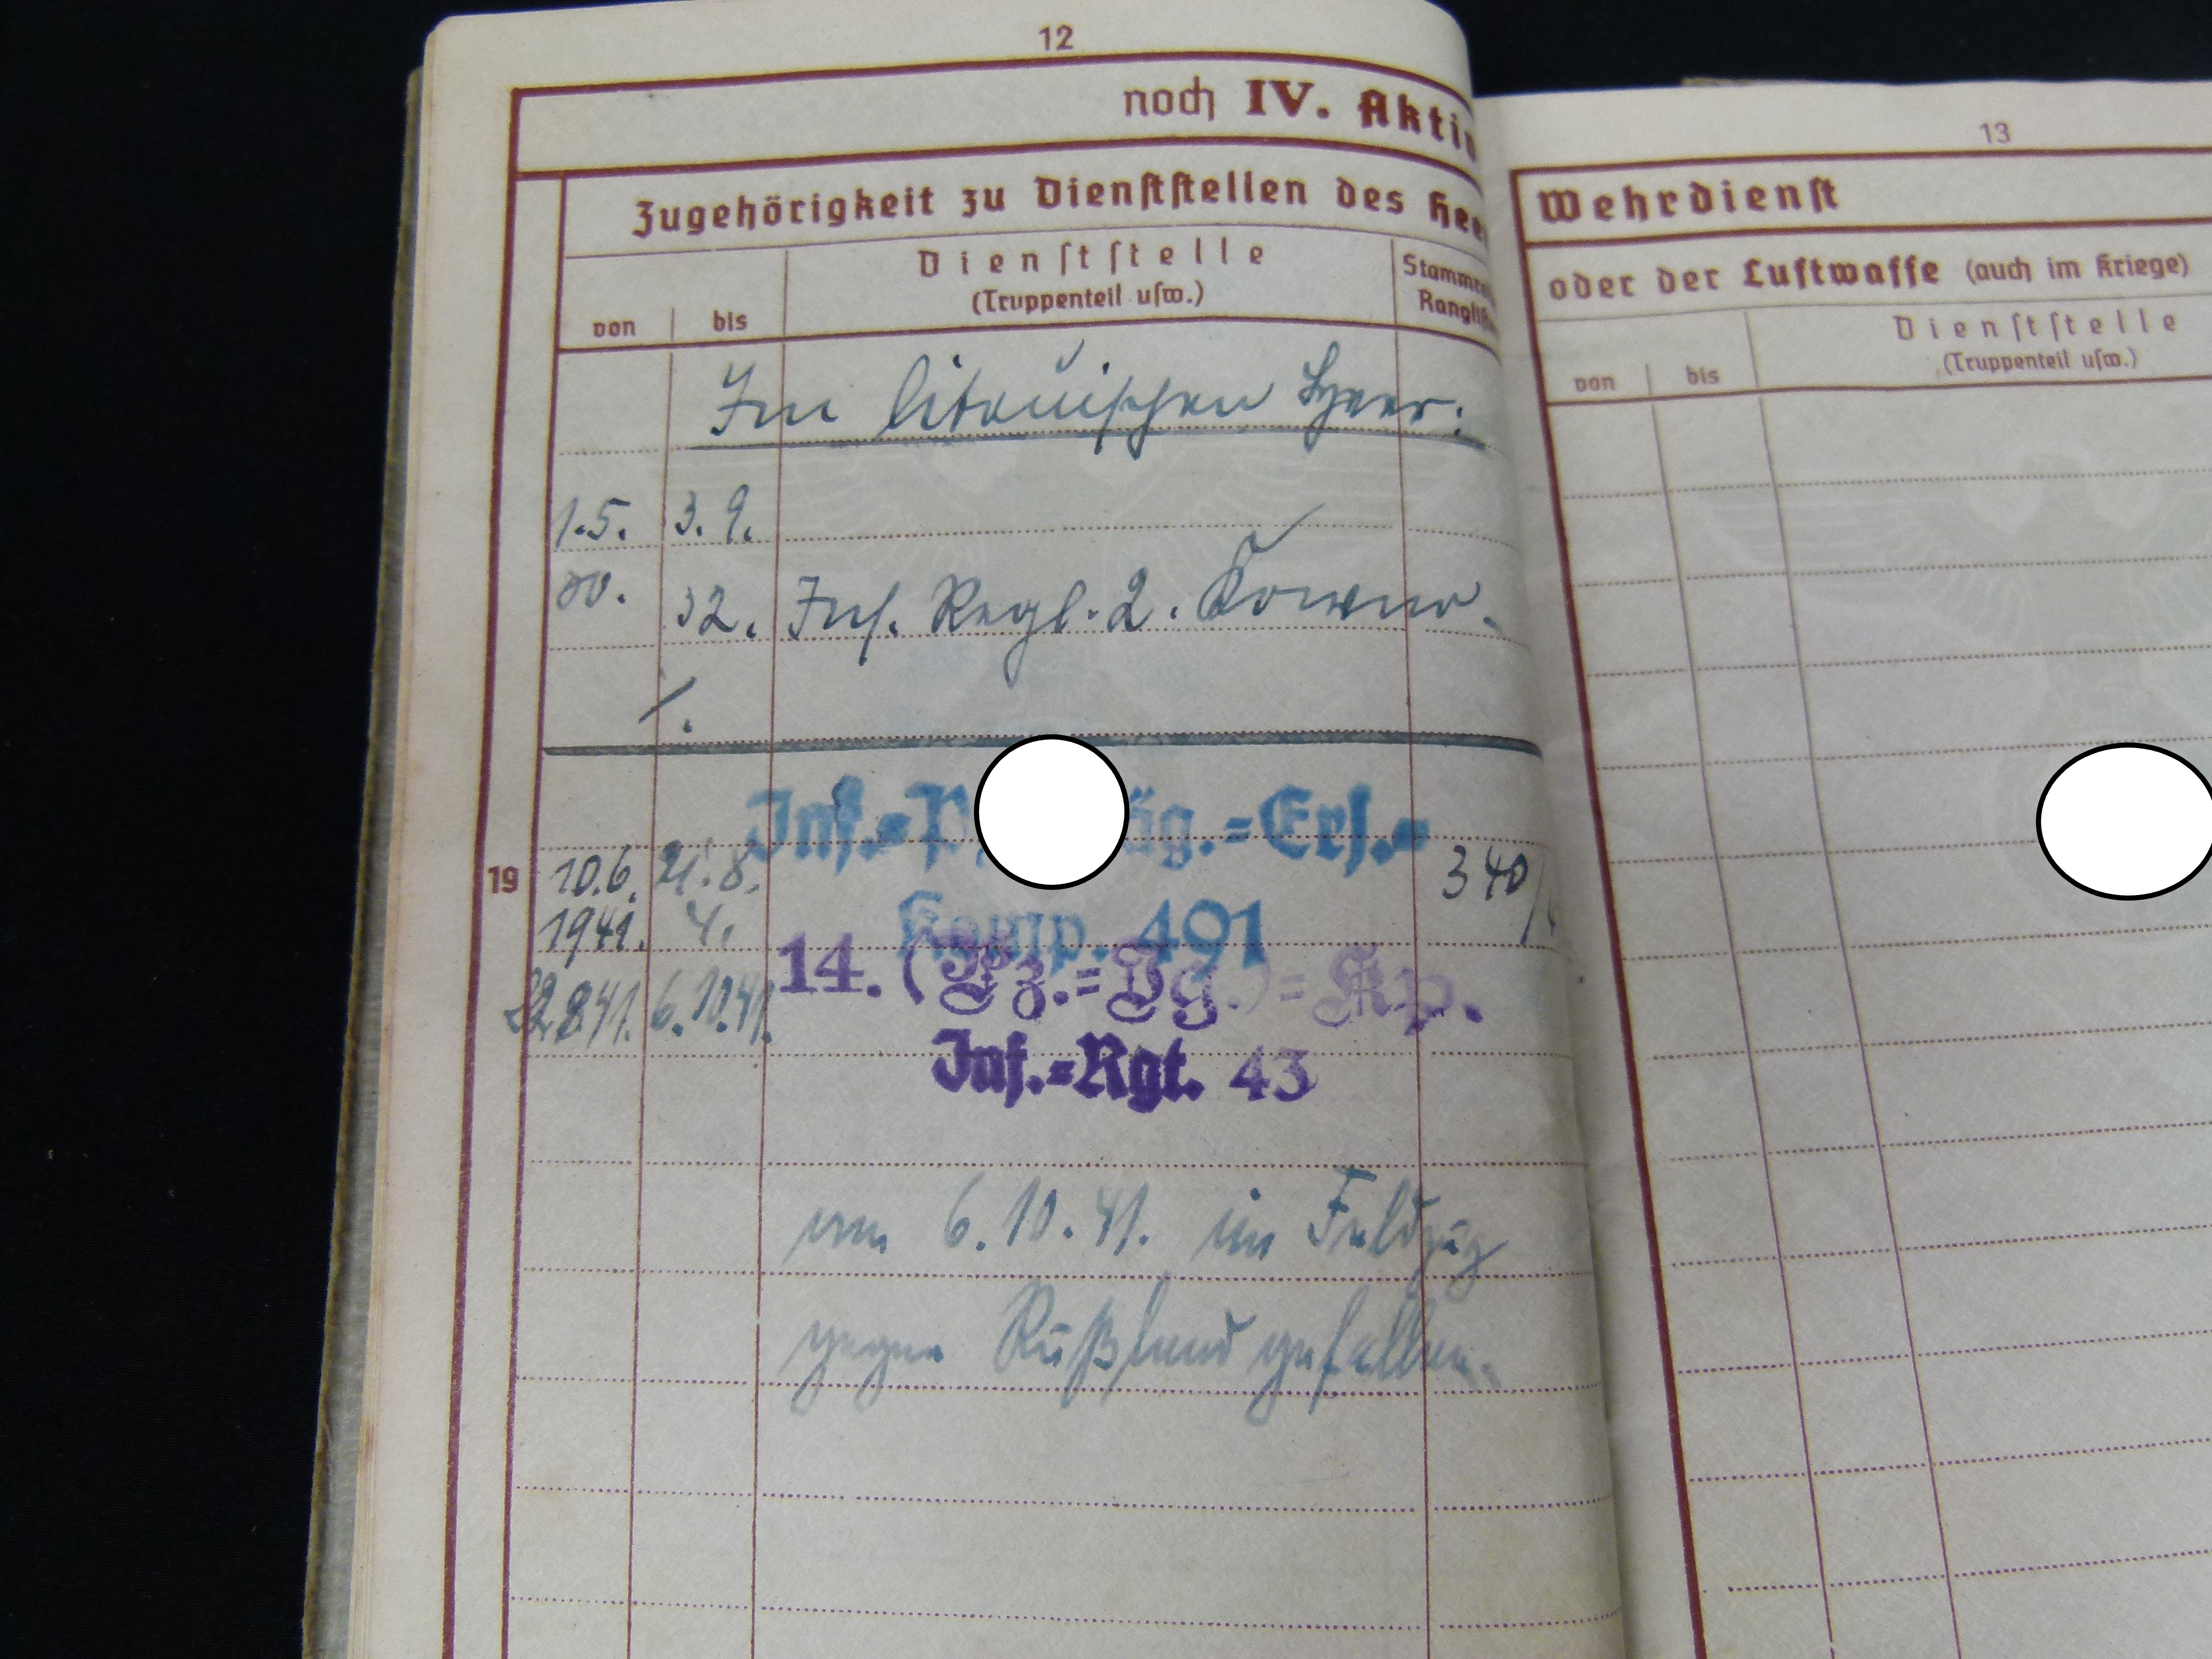 12
noch IV. Aktiv
Zugehörigkeit zu Dienststellen des Hee
von
bis
Dienststelle
(Truppenteil usw.)
Stammro
Ranglis
Im litauischen Heer:
1.5. 3.9.
30. 32. Inf. Regt. 2. Kowno.
/.
Inf.=P äg.=Ers.=
19 10.6. 21.8. 340/
1941. 41. Komp. 491
22.8.41. 6.10.41. 14. (Pz.=Jg.)=Kp.
Inf.=Rgt. 43
am 6.10.41. im Feldzug
gegen Rußland gefallen.
13
Wehrdienst
oder der Luftwaffe (auch im Kriege)
von
bis
Dienststelle
(Truppenteil usw.)